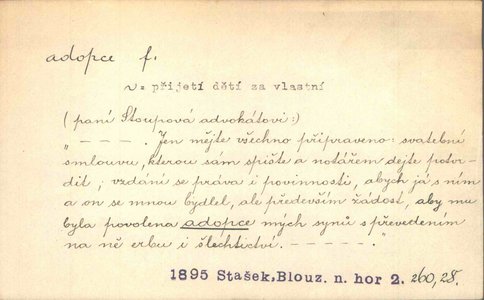 adopce f.
~ = přijetí dětí za vlastní
(paní Stoupová advokátovi:)
„ – – – . Jen mějte všechno připraveno: svatební
smlouvu, kterou sám spište a notářem dejte potvr-
dit; vzdání se práva i povinnosti, abych já s ním
a on se mnou bydlel, ale především žádost, aby mu
byla povolena adopce mých synů s převedením
na ně erbu i šlechtictví. – – – – – ."
1895 Stašek, Blouz. n. hor 2. 260, 28.